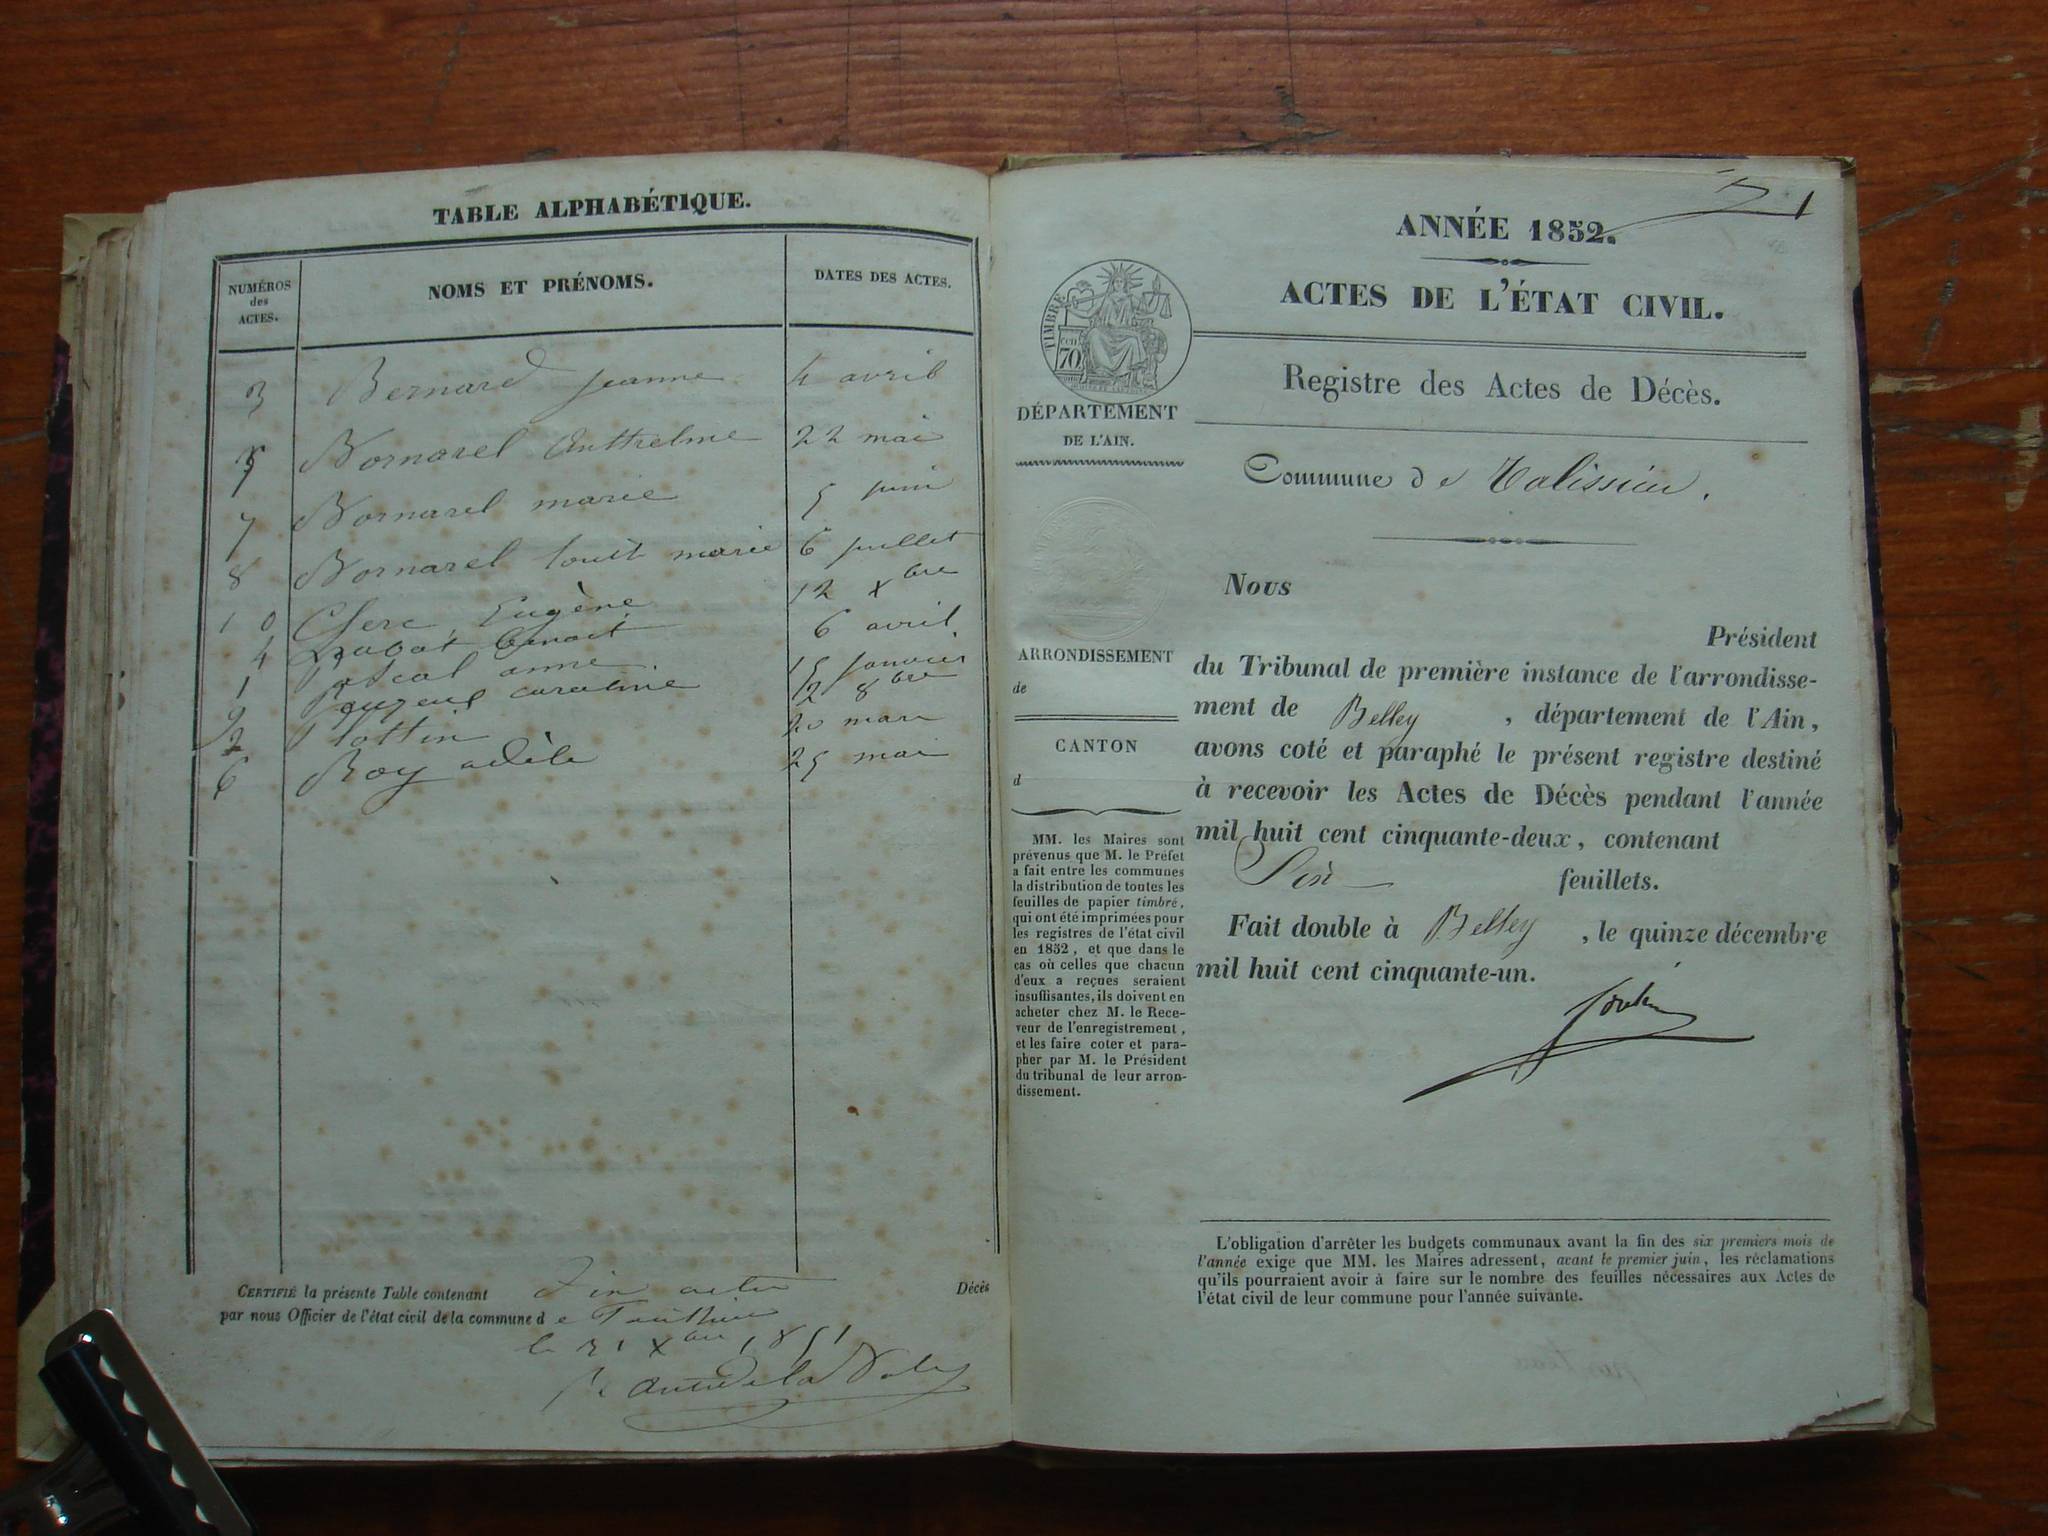 TABLE ALPHABÉTIQUE.
NUMÉROS
des
ACTES.
NOMS ET PRÉNOMS.
DATES DES ACTES.
3 Bernard Jeanne 4 avril
5 Bornarel Anthelme 22 mai
7 Bornarel marie 5 juin
8 Bornarel marie 6 juillet
10 Clerc Eugène 12 Xbre
4 benoit 6 avril
1 anne 15 janvier
9 caroline 12 8bre
2 20 mars
6 Roy adèle 25 mai
CERTIFIÉ la présente Table contenant Décès
par nous Officier de l'état civil de la commune de
le 31 Xbre 1851
ANNÉE 1852.
1
ACTES DE L'ÉTAT CIVIL.
TIMBRE
70
Registre des Actes de Décès.
DÉPARTEMENT
DE L'AIN.
Commune de Talissieu.
ARRONDISSEMENT
de
CANTON
d
MM. les Maires sont
prévenus que M. le Préfet
a fait entre les communes
la distribution de toutes les
feuilles de papier timbré,
qui ont été imprimées pour
les registres de l'état civil
en 1852, et que dans le
cas où celles que chacun
d'eux a reçues seraient
insuffisantes, ils doivent en
acheter chez M. le Rece-
veur de l'enregistrement,
et les faire coter et para-
pher par M. le Président
du tribunal de leur arron-
dissement.
Nous
Président
du Tribunal de première instance de l'arrondisse-
ment de Belley, département de l'Ain,
avons coté et paraphé le présent registre destiné
à recevoir les Actes de Décès pendant l'année
mil huit cent cinquante-deux, contenant
Six feuillets.
Fait double à Belley, le quinze décembre
mil huit cent cinquante-un.
L'obligation d'arrêter les budgets communaux avant la fin des six premiers mois de
l'année exige que MM. les Maires adressent, avant le premier juin, les réclamations
qu'ils pourraient avoir à faire sur le nombre des feuilles nécessaires aux Actes de
l'état civil de leur commune pour l'année suivante.